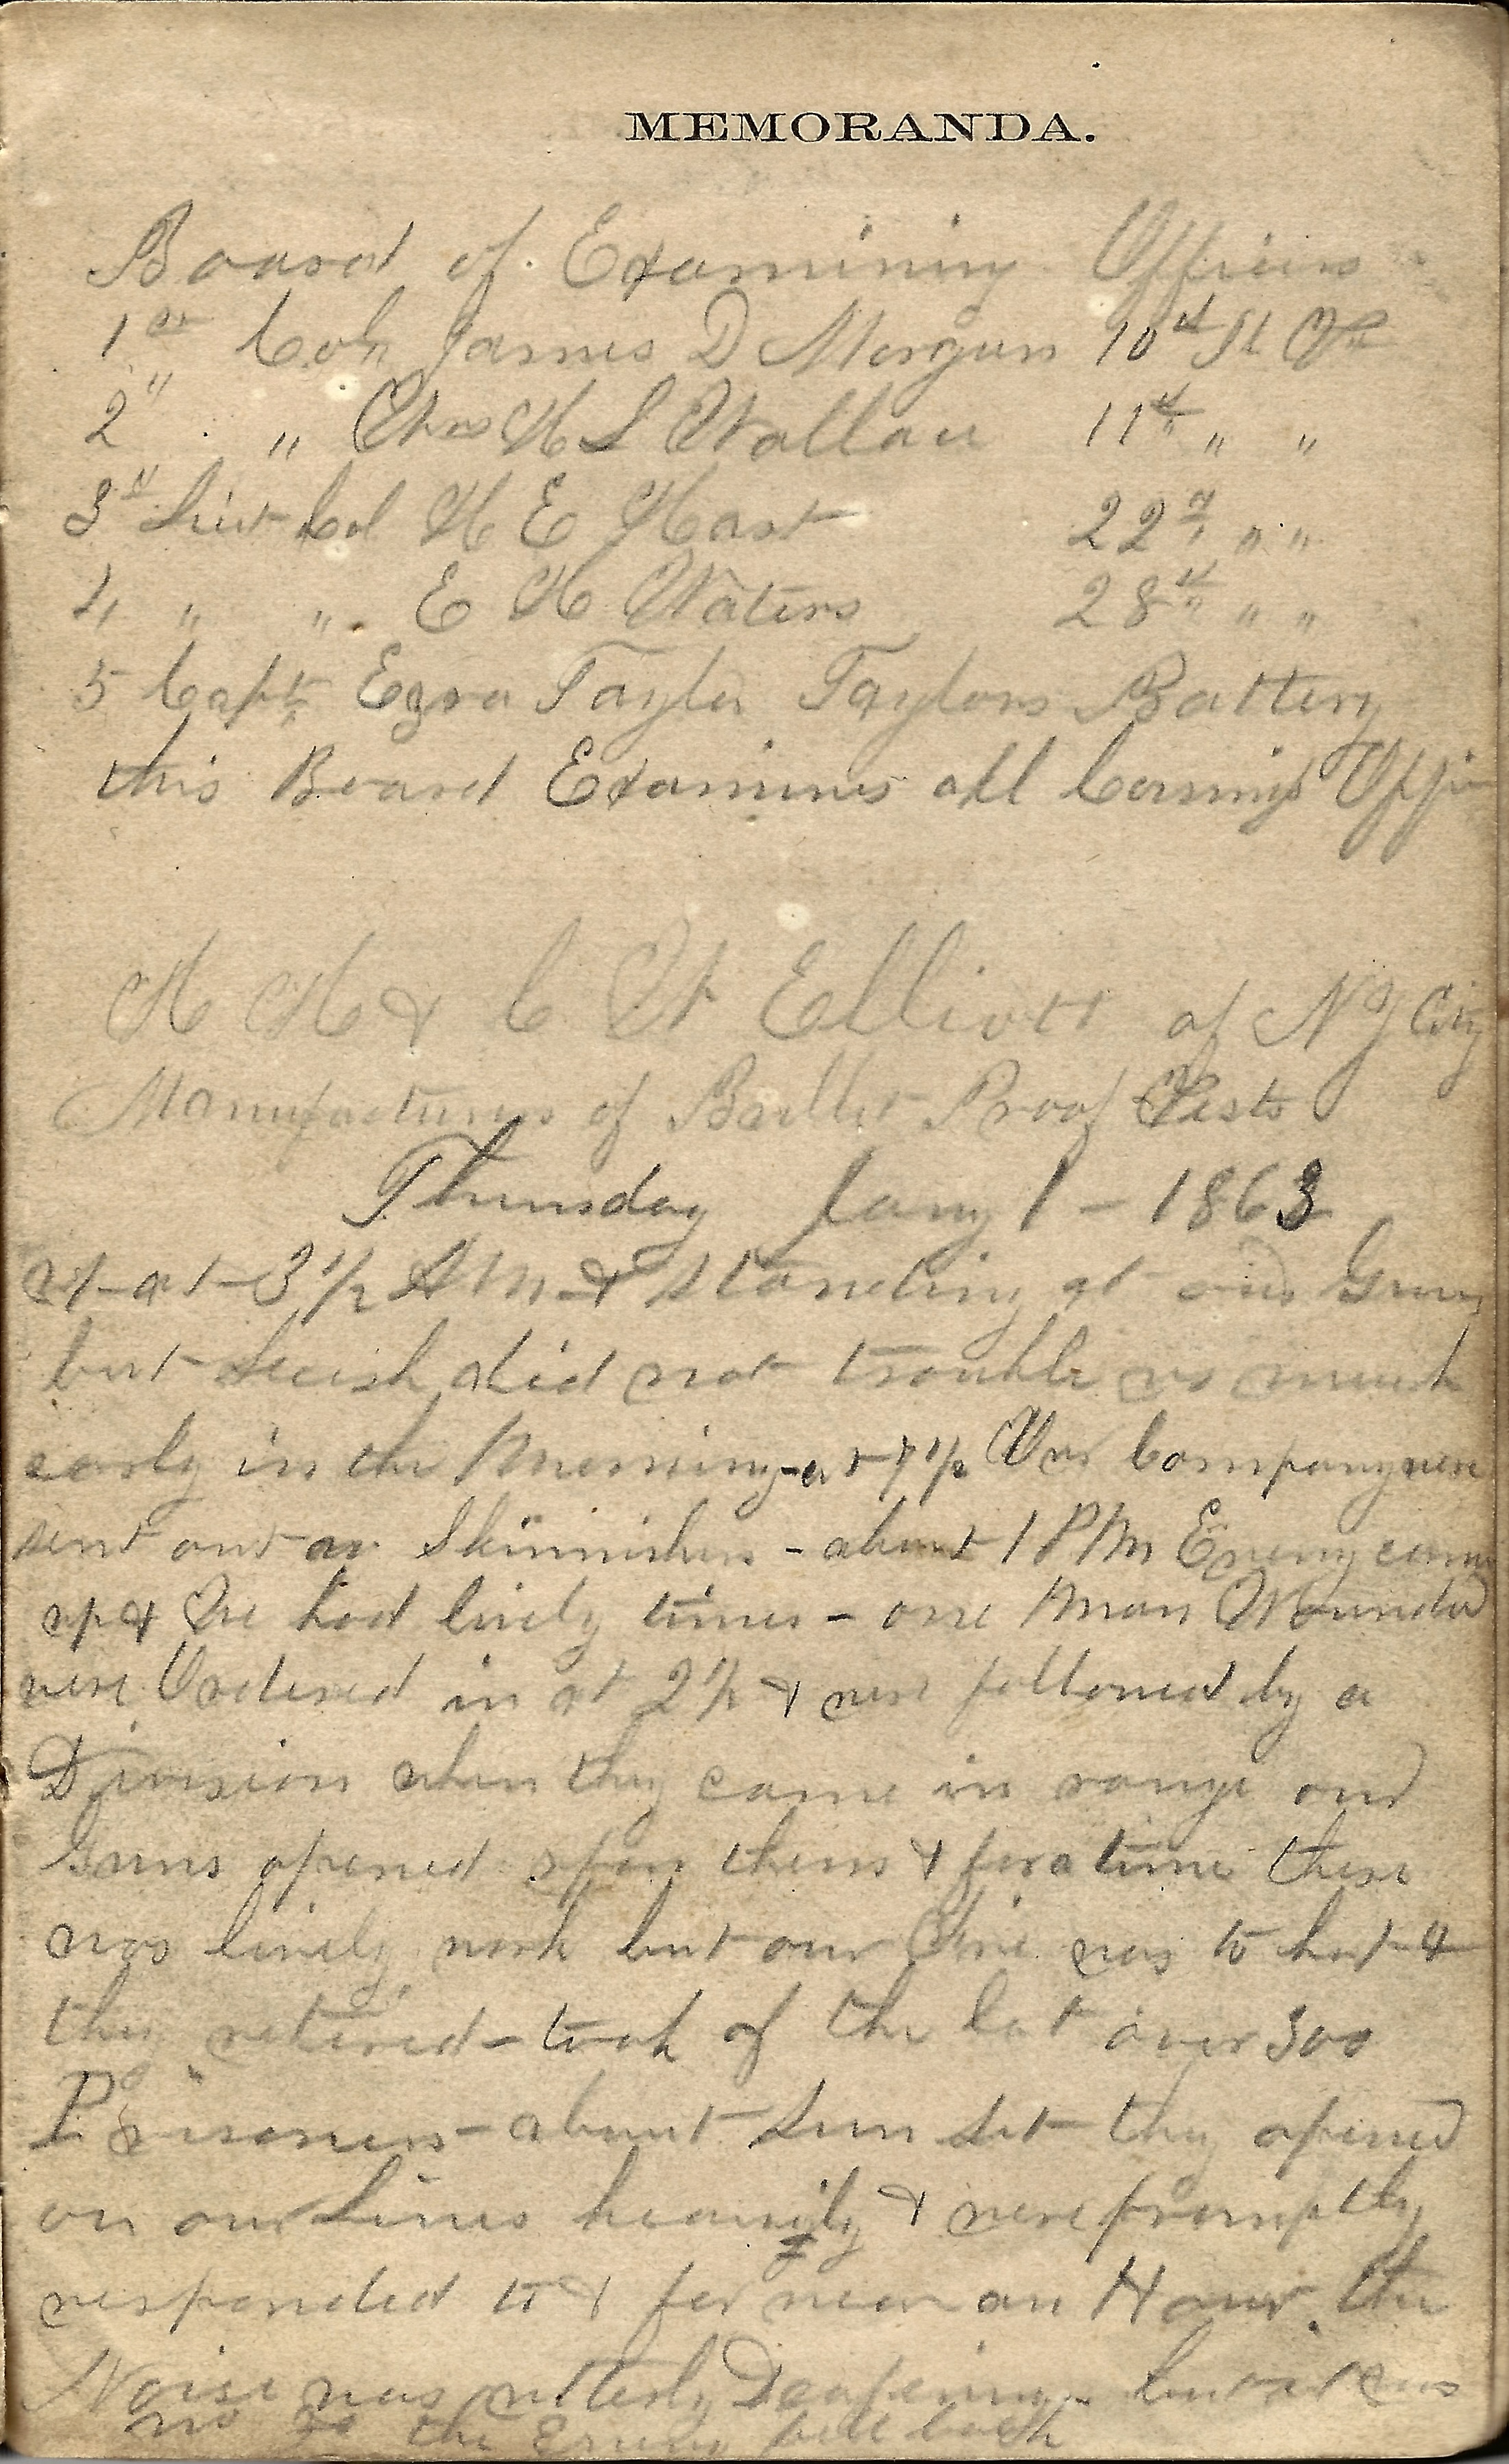 MEMORANDA.
Board of Examining Officers
1st Col. James D Morgan 10th Ill
2" " Wallace 11th " "
3d Liut Col H E Hart 22d " "
4 " " E H Waters 28th " "
5 Capt Ezra Taylor Taylors Battery
this Board Examines all Offi
H H & C Elliott of N Y City
Manufacturers of Bullet Proof Vests
Thursday Jany 1 - 1863
at 3 1/2 A M & standing at our Guns
but Secish did not trouble us much
early in the Morning - at 7 1/2 Our Company were
sent out as Skirmishers - about 1 PM Enemy came
up & We had lively times - one Man Wounded
were Ordered in at 2 1/2 & were followed by a
Division when they came in range our
Guns opened upon them & for a time there
was lively work but our Fire was to hot &
they retired - took of the lot over 300
Prisoners - about Sun Set they opened
on our Lines heavily & were promptly
responded to & for near an Hour. the
Noise was utterly Deafening - but
the fell back